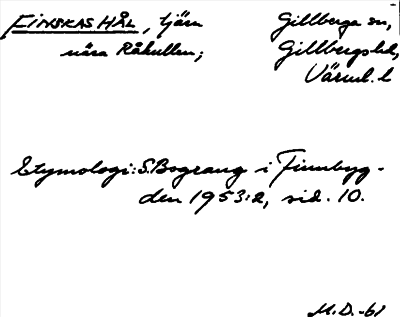 FINSKAS HÅL, tjärn Gillberga sn,
nära Råkullen; Gillbergs hd,
Värml. l
Etymologi: S. Bograng i Finnbyg-
den 1953:2, sid. 10.
M.D.-61